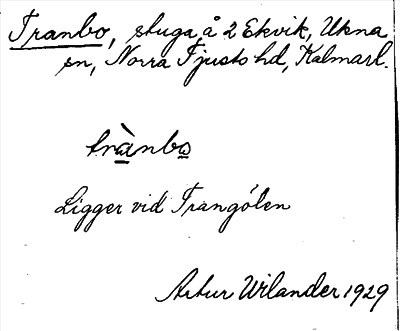 Tranbo, stuga å 2 Ekvik, Ukna
sn, Norra Tjusts hd, Kalmar l.
trànbo
Ligger vid Trangölen
Artur Wilander 1929